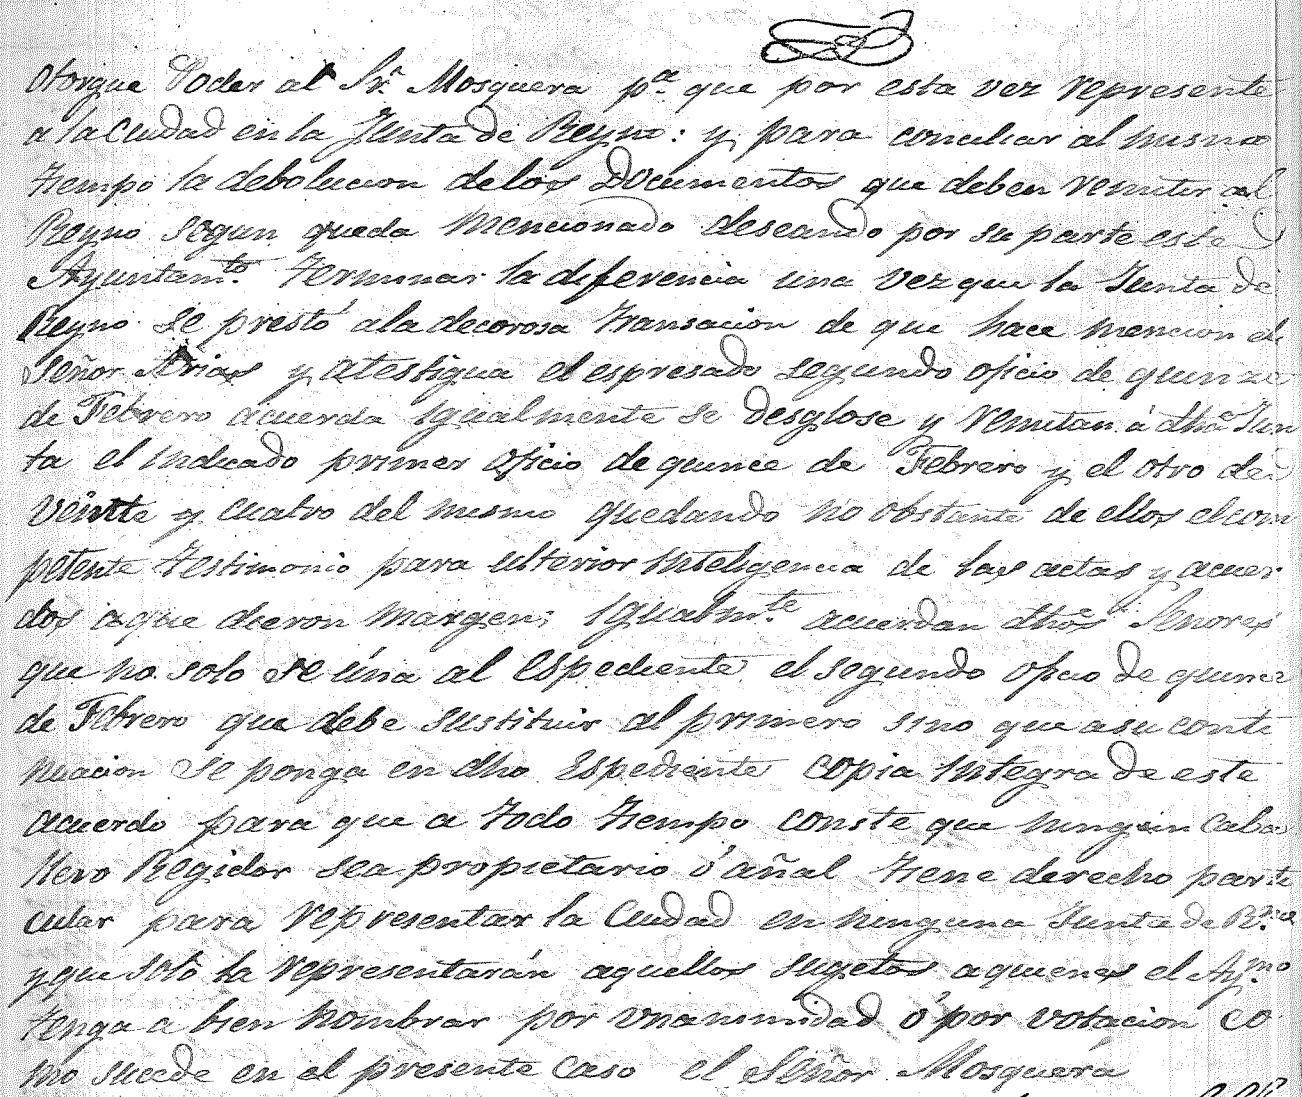 otorgue Poder al Sr. Mosquera pa. que por esta vez represente
a la Ciudad en la Junta de Reyno: y para conciliar al mismo
tiempo la debolucion delos Documentos que deben remitir al
Reyno segun queda mencionado deseando por su parte este
Ayuntamto. terminar la diferencia una vez que la Junta de
Reyno se prestó ala decorosa transacion de que hace mencion el
Señor Arias y atestigua el espresado segundo oficio de quinze
de Febrero acuerda igualmente se desglose y remitan á dha Jun
ta el indicado primer oficio de quince de Febrero y el otro de
veinte y cuatro del mismo quedando no obstante de ellos el com
petente testimonio para ulterior inteligencia de las actas y acuer
dos a que dieron margen; igualmte. acuerdan dhos Señores
que no solo se úna al espediente el segundo oficio de quince
de Febrero que debe sustituir al primero sino que a su conti
nuacion se ponga en dho Espediente copia integra de este
acuerdo para que a todo tiempo conste que ningun Caba
llero Regidor sea propietario ó añal tiene derecho parti
cular para representar la Ciudad en ninguna Junta de
y que solo la representarán aquellos sugetos a quienes el Aymo
tenga a bien nombrar por unanimidad ó por votacion co
mo sucede en el presente caso el Señor Mosquera